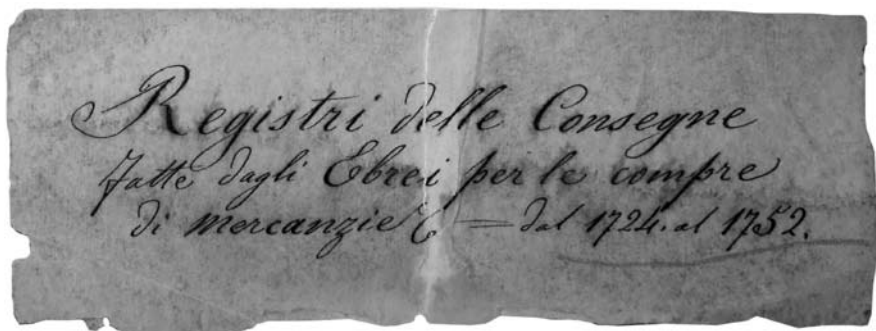 Registri delle Consegne
fatte dagli Ebrei per le compre
di mercanzie &c = dal 1724. al 1752.